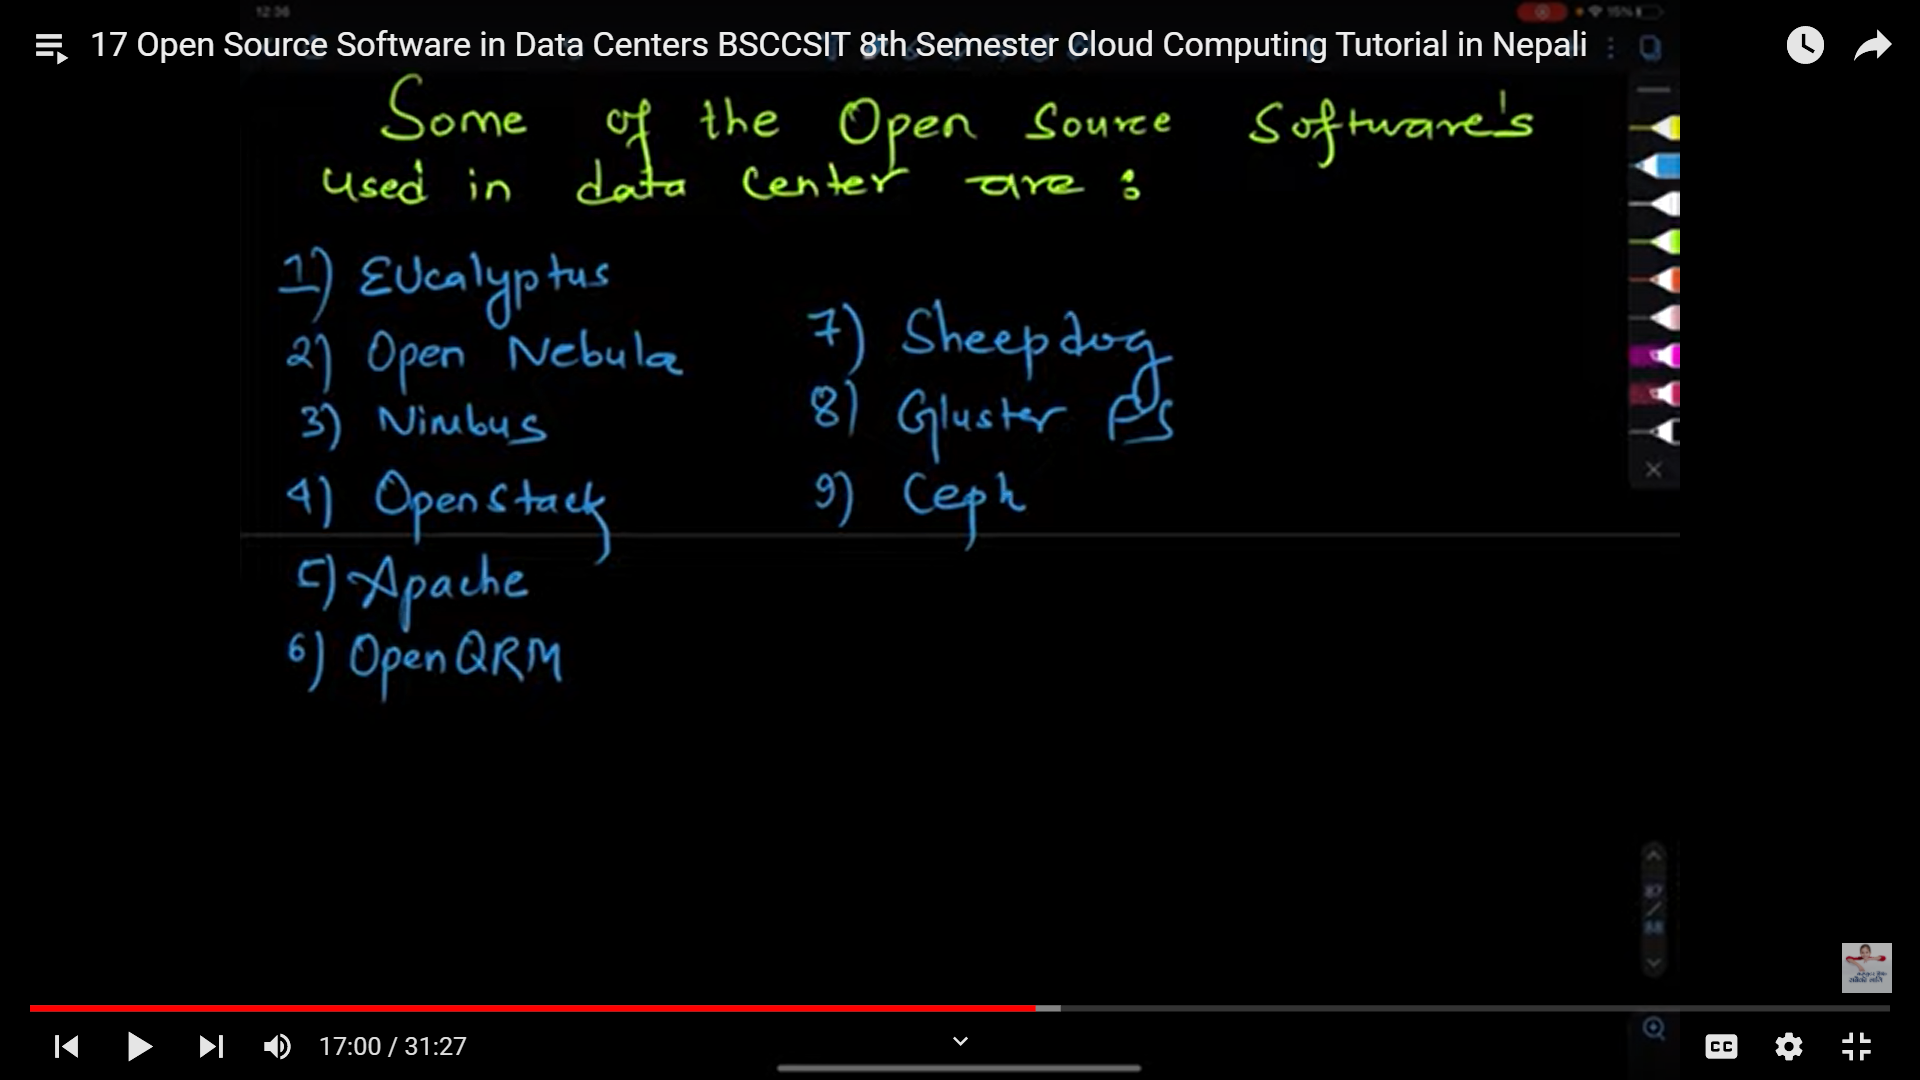 12:36
15%
17 Open Source Software in Data Centers BSCCSIT 8th Semester Cloud Computing Tutorial in Nepali
Some of the Open Source Software's
used in data Center are :
1) Eucalyptus
2) Open Nebula
3) Nimbus
4) Openstack
5) Apache
6) OpenQRM
7) Sheepdog
8) Gluster FS
9) Ceph
87
/
88
17:00 / 31:27
CC